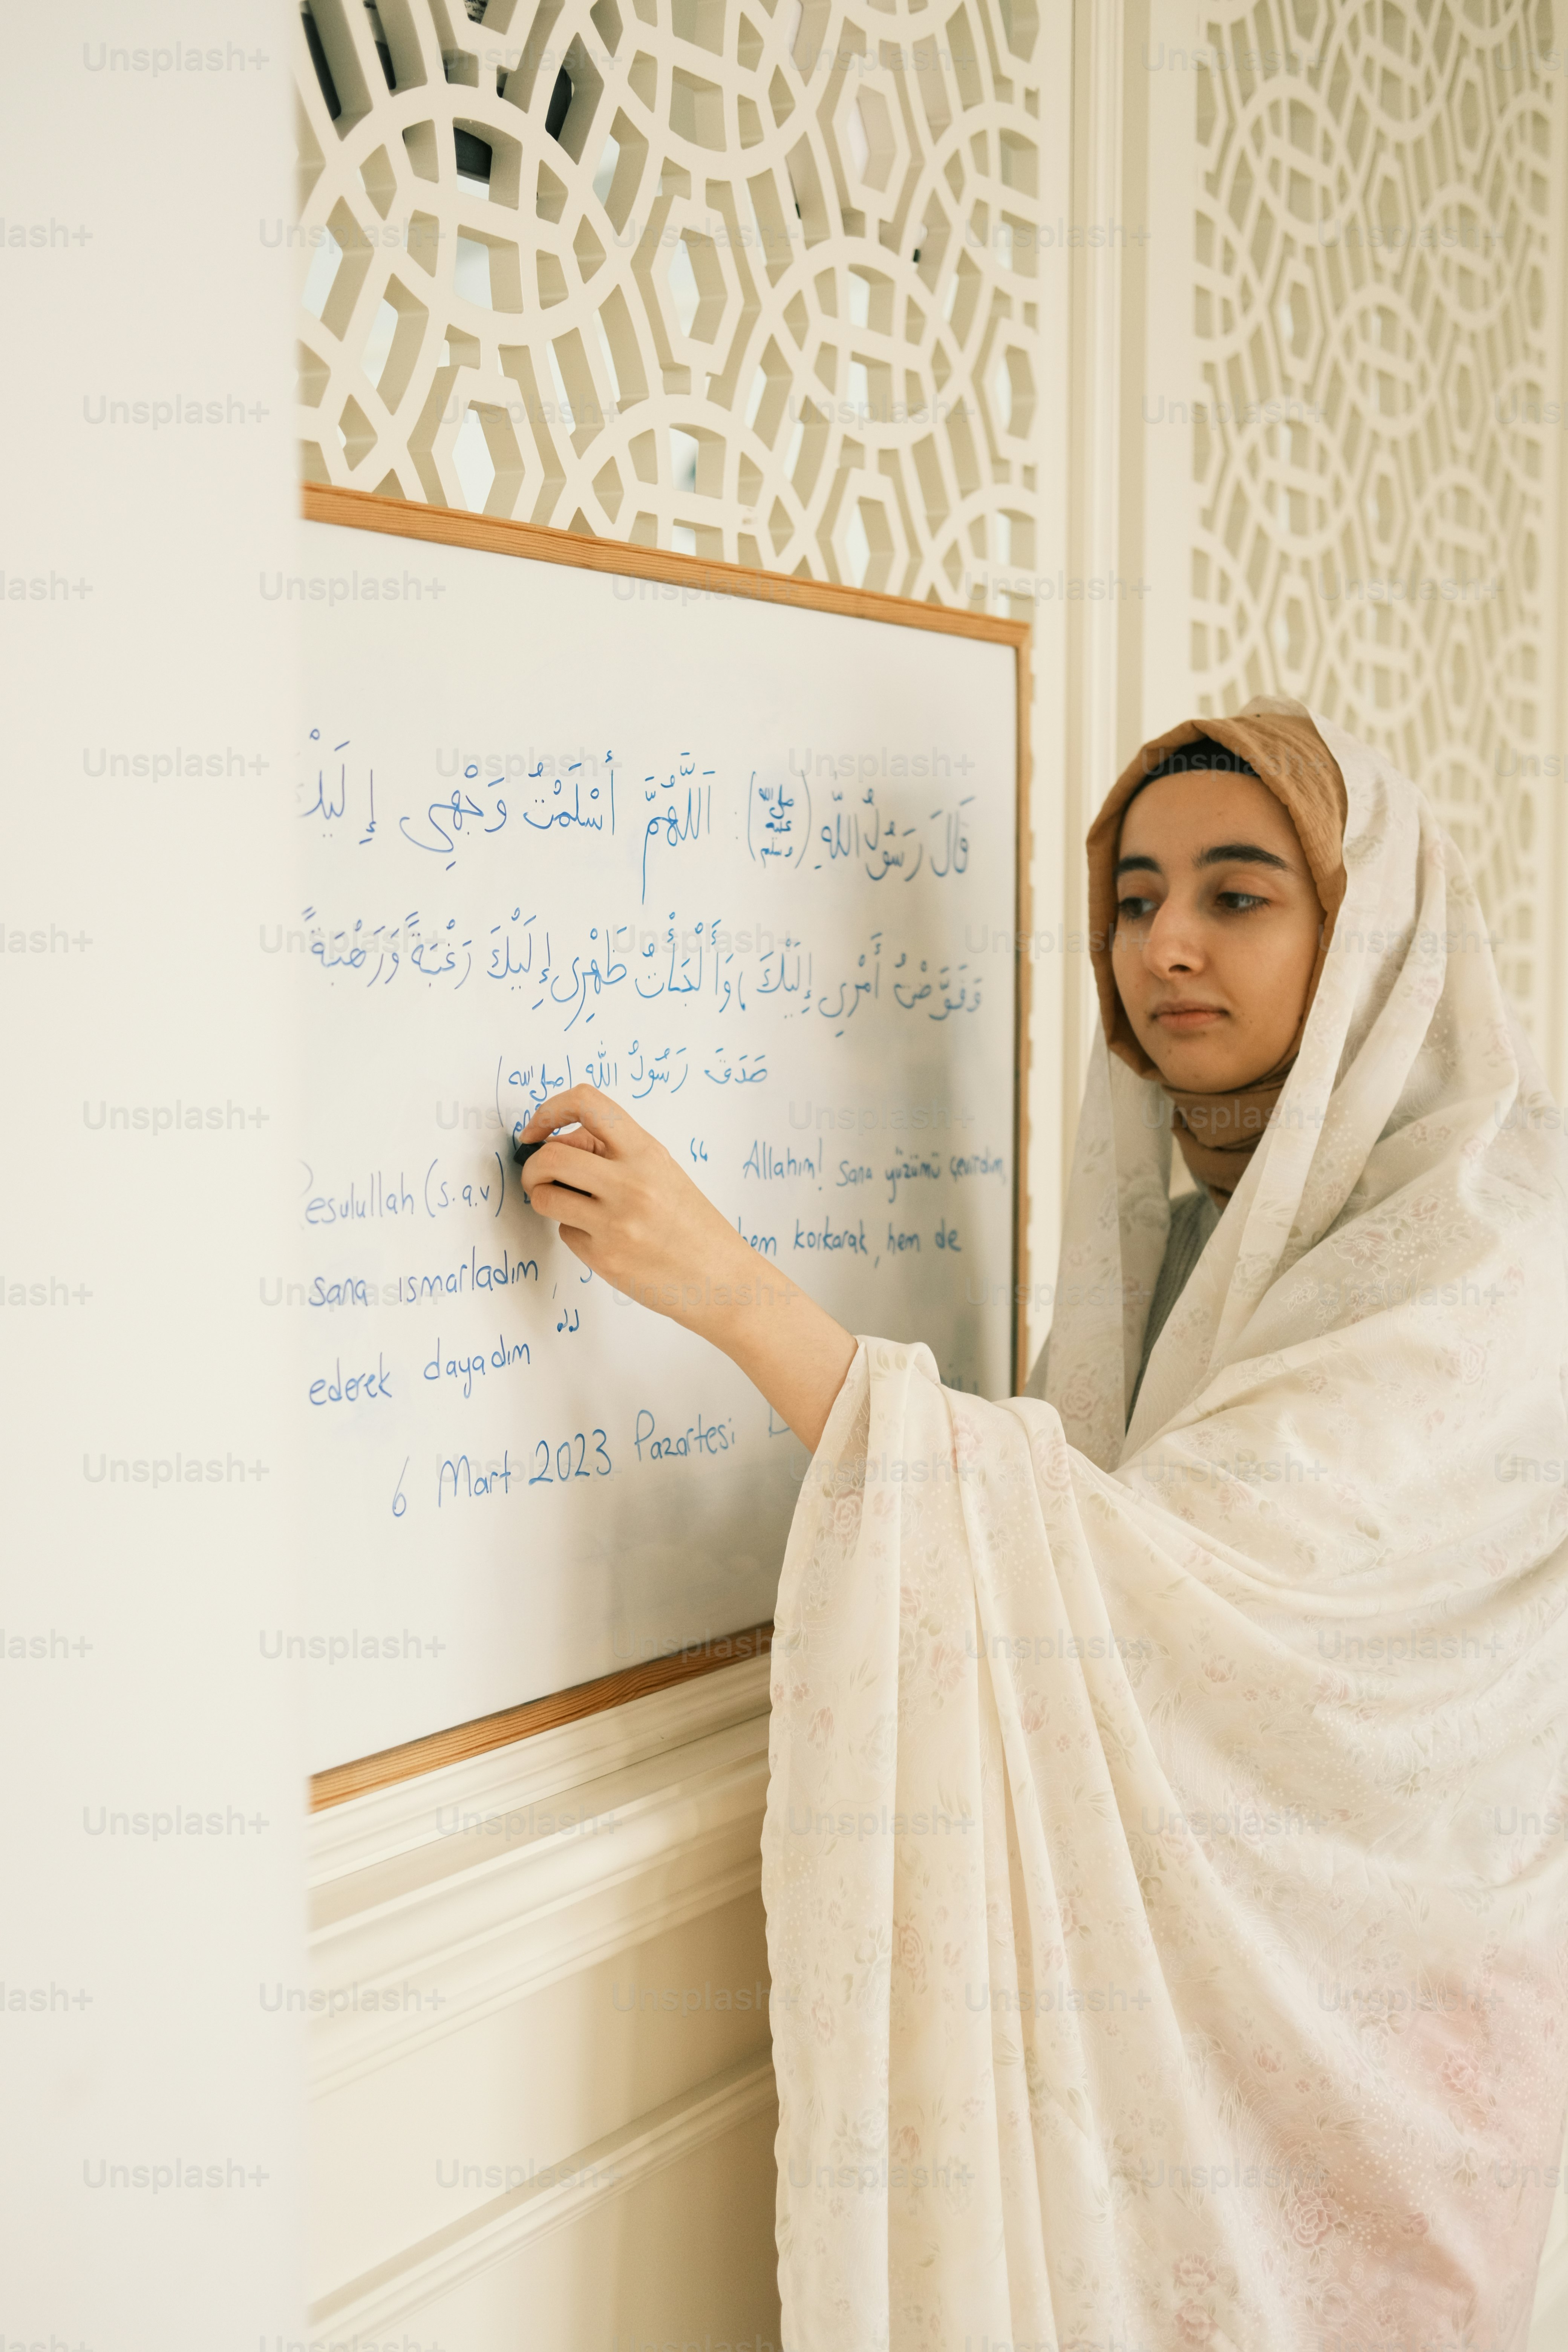 قَالَ رَسُولُ اللّٰهِ (صلى الله عليه وسلم): اَللَّهُمَّ أَسْلَمْتُ وَجْهِي إِلَيْكَ
وَفَوَّضْتُ أَمْرِي إِلَيْكَ، وَأَلْجَأْتُ ظَهْرِي إِلَيْكَ رَغْبَةً وَرَهْبَةً
صَدَقَ رَسُولُ اللّٰه (صلى الله
esulullah (s.a.v) “ Allahım! Sana yüzümü çevirdim,
sana ısmarladım, hem korkarak, hem de
ederek dayadım ”
6 Mart 2023 Pazartesi